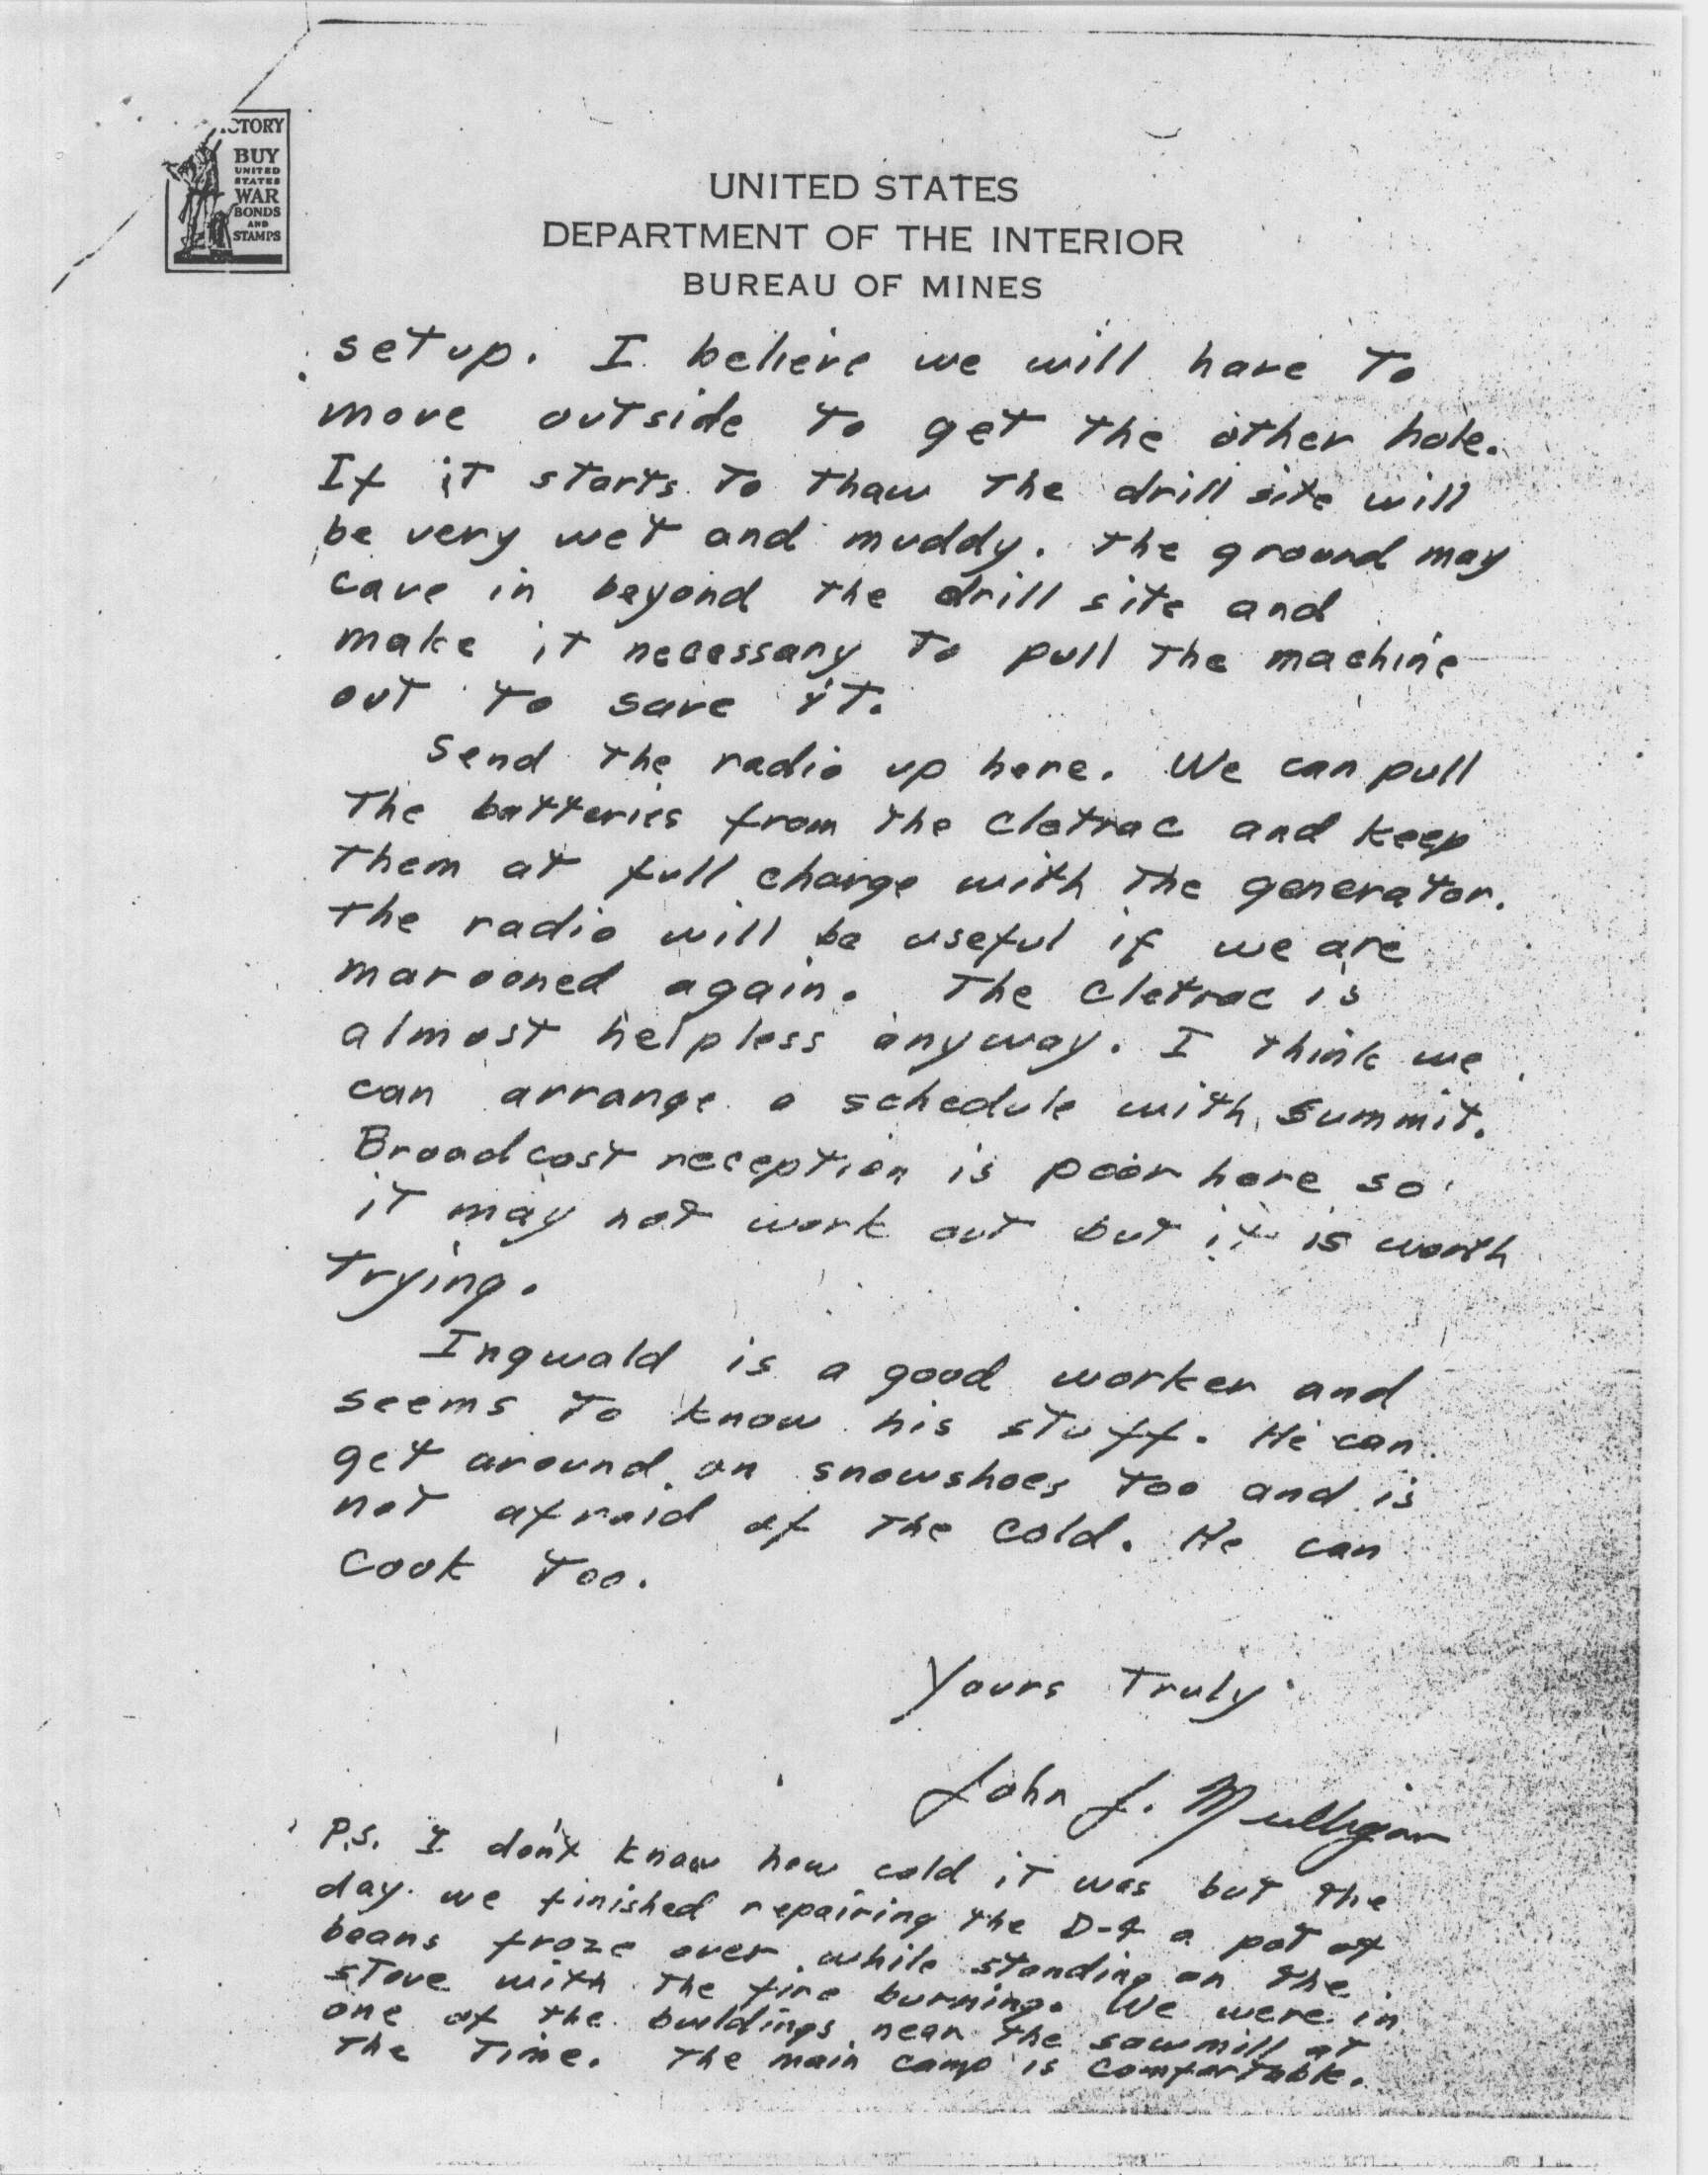 CTORY
BUY
UNITED
STATES
WAR
BONDS
AND
STAMPS
UNITED STATES
DEPARTMENT OF THE INTERIOR
BUREAU OF MINES
setup. I believe we will have to
move outside to get the other hole.
If it starts to thaw the drill site will
be very wet and muddy. The ground may
cave in beyond the drill site and
make it necessary to pull the machine
out to save it.
Send the radio up here. We can pull
the batteries from the cletrac and keep
them at full charge with the generator.
The radio will be useful if we are
marooned again. The cletrac is
almost helpless anyway. I think we
can arrange a schedule with Summit.
Broadcast reception is poor here so
it may not work out but it is worth
trying.
Ingwald is a good worker and
seems to know his stuff. He can
get around on snowshoes too and is
not afraid of the cold. He can
cook too.
Yours Truly
John J. Mulligan
P.S. I don't know how cold it was but the
day we finished repairing the D-4 a pot of
beans froze over while standing on the
stove with the fire burning. We were in
one of the buildings near the sawmill at
the time. The main camp is comfortable.